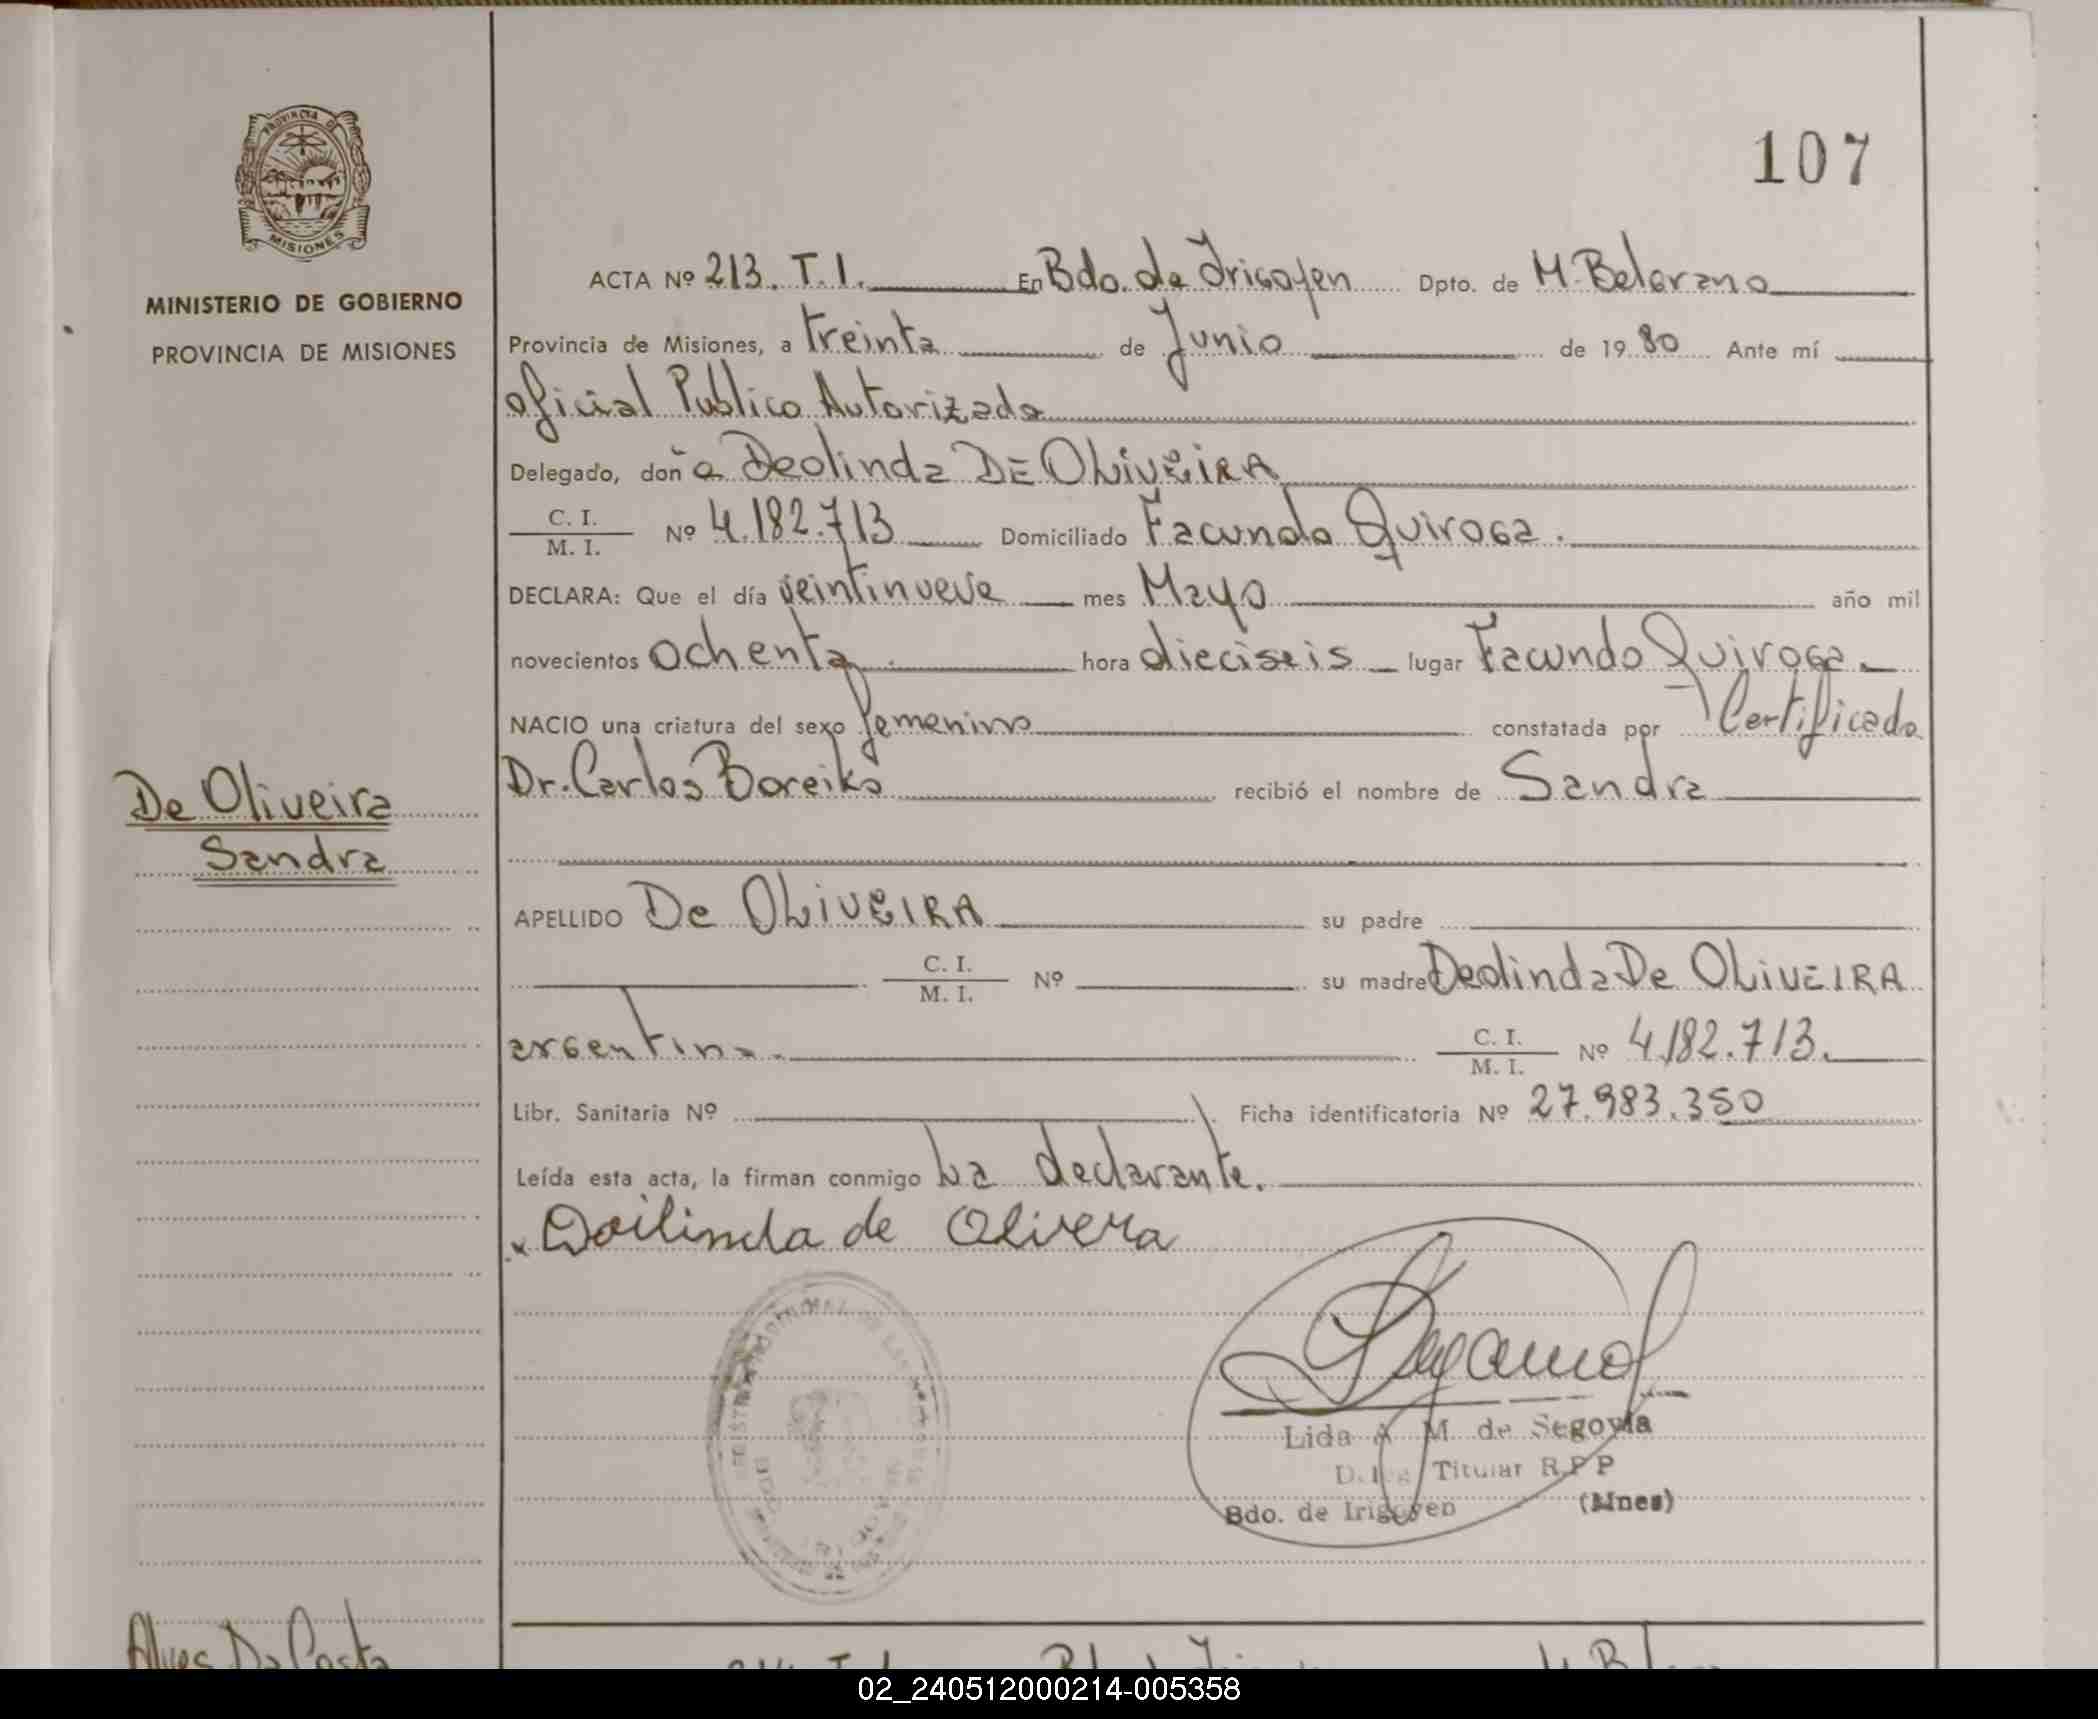 PROVINCIA DE
MISIONES
MINISTERIO DE GOBIERNO
PROVINCIA DE MISIONES
107
ACTA Nº 213. T. I. En Bdo. de Irigoyen Dpto. de M. Belgrano
Provincia de Misiones, a treinta de Junio de 19 80 Ante mí
oficial Publico Autorizado
Delegado, doñ a Deolinda DE OLIVEIRA
C. I.
M. I. Nº 4.182.713 Domiciliado Facundo Quiroga.
DECLARA: Que el día veintinueve mes Mayo año mil
novecientos ochenta hora dieciseis lugar Facundo Quiroga
NACIO una criatura del sexo femenino constatada por Certificado
Dr. Carlos Boreiko recibió el nombre de Sandra
De Oliveira
Sandra
APELLIDO De OLIVEIRA su padre
C. I.
M. I. Nº su madre Deolinda De OLIVEIRA
argentina. C. I.
M. I. Nº 4.182.713.
Libr. Sanitaria Nº Ficha identificatoria Nº 27.983.350
Leída esta acta, la firman conmigo La declarante.
x Doilinda de Olivera
Lida A. M. de Segovia
Deleg Titular R.P P
Bdo. de Irigoyen (Mnes)
Alves Da Costa
02_240512000214-005358